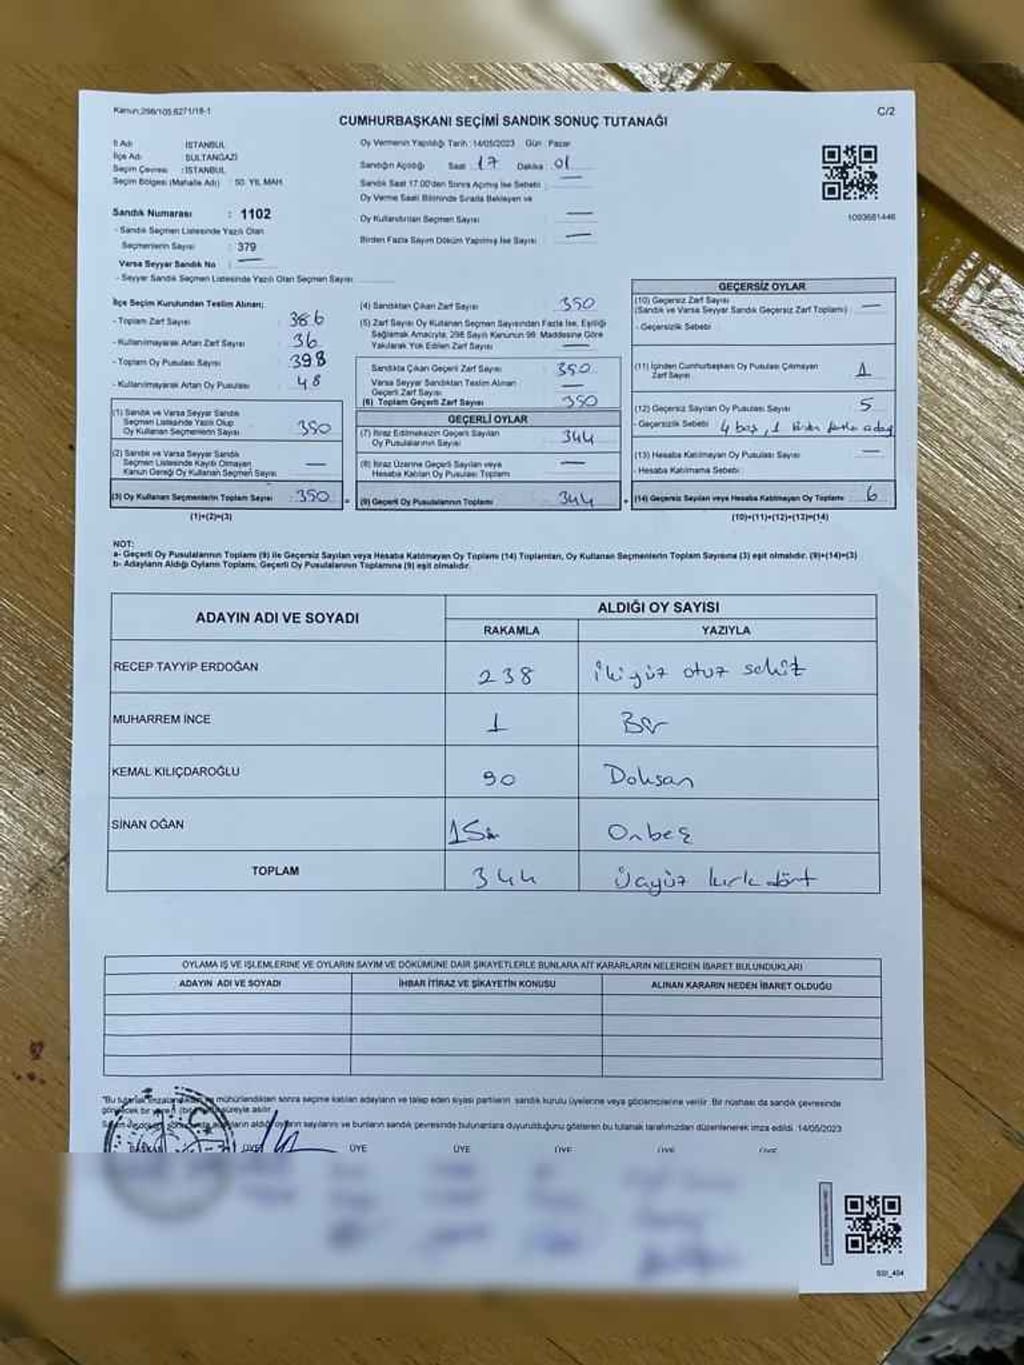 Kanun:298/105,6271/18-1
C/2
CUMHURBAŞKANI SEÇİMİ SANDIK SONUÇ TUTANAĞI
İl Adı : İSTANBUL
İlçe Adı : SULTANGAZİ
Seçim Çevresi : İSTANBUL
Seçim Bölgesi (Mahalle Adı) : 50. YIL MAH.
Sandık Numarası : 1102
- Sandık Seçmen Listesinde Yazılı Olan
Seçmenlerin Sayısı : 379
Varsa Seyyar Sandık No : —
- Seyyar Sandık Seçmen Listesinde Yazılı Olan Seçmen Sayısı
Oy Vermenin Yapıldığı Tarih :14/05/2023 Gün : Pazar
Sandığın Açıldığı Saat : 17 Dakika : 01
Sandık Saat 17.00'den Sonra Açılmış İse Sebebi : —
Oy Verme Saati Bitiminde Sırada Bekleyen ve
Oy Kullandırılan Seçmen Sayısı : —
Birden Fazla Sayım Döküm Yapılmış İse Sayısı : —
1093681446
İlçe Seçim Kurulundan Teslim Alınan;
- Toplam Zarf Sayısı : 386
- Kullanılmayarak Artan Zarf Sayısı : 36
- Toplam Oy Pusulası Sayısı : 398
- Kullanılmayarak Artan Oy Pusulası : 48
(1) Sandık ve Varsa Seyyar Sandık
Seçmen Listesinde Yazılı Olup
Oy Kullanan Seçmenlerin Sayısı : 350
(2) Sandık ve Varsa Seyyar Sandık
Seçmen Listesinde Kayıtlı Olmayan
Kanun Gereği Oy Kullanan Seçmen Sayısı : —
(3) Oy Kullanan Seçmenlerin Toplam Sayısı : 350
(1)+(2)=(3)
(4) Sandıktan Çıkan Zarf Sayısı : 350
(5) Zarf Sayısı Oy Kullanan Seçmen Sayısından Fazla İse, Eşitliği
Sağlamak Amacıyla, 298 Sayılı Kanunun 98. Maddesine Göre
Yakılarak Yok Edilen Zarf Sayısı : —
Sandıkta Çıkan Geçerli Zarf Sayısı : 350
Varsa Seyyar Sandıktan Teslim Alınan
Geçerli Zarf Sayısı : —
(6) Toplam Geçerli Zarf Sayısı : 350
GEÇERLİ OYLAR
(7) İtiraz Edilmeksizin Geçerli Sayılan
Oy Pusulalarının Sayısı : 344
(8) İtiraz Üzerine Geçerli Sayılan veya
Hesaba Katılan Oy Pusulası Toplamı : —
(9) Geçerli Oy Pusulalarının Toplamı : 344
GEÇERSİZ OYLAR
(10) Geçersiz Zarf Sayısı
(Sandık ve Varsa Seyyar Sandık Geçersiz Zarf Toplamı) : —
- Geçersizlik Sebebi :
(11) İçinden Cumhurbaşkanı Oy Pusulası Çıkmayan
Zarf Sayısı : 1
(12) Geçersiz Sayılan Oy Pusulası Sayısı : 5
- Geçersizlik Sebebi : 4 boş, 1 birden fazla aday
(13) Hesaba Katılmayan Oy Pusulası Sayısı : —
- Hesaba Katılmama Sebebi :
(14) Geçersiz Sayılan veya Hesaba Katılmayan Oy Toplamı : 6
(10)+(11)+(12)+(13)=(14)
NOT:
a- Geçerli Oy Pusulalarının Toplamı (9) ile Geçersiz Sayılan veya Hesaba Katılmayan Oy Toplamı (14) Toplamları, Oy Kullanan Seçmenlerin Toplam Sayısına (3) eşit olmalıdır. (9)+(14)=(3)
b- Adayların Aldığı Oyların Toplamı, Geçerli Oy Pusulalarının Toplamına (9) eşit olmalıdır.
ADAYIN ADI VE SOYADI ALDIĞI OY SAYISI
RAKAMLA YAZIYLA
RECEP TAYYİP ERDOĞAN 238 İkiyüz otuz sekiz
MUHARREM İNCE 1 Bir
KEMAL KILIÇDAROĞLU 90 Doksan
SİNAN OĞAN 15 Onbeş
TOPLAM 344 Üçyüz kırk dört
OYLAMA İŞ VE İŞLEMLERİNE VE OYLARIN SAYIM VE DÖKÜMÜNE DAİR ŞİKAYETLERLE BUNLARA AİT KARARLARIN NELERDEN İBARET BULUNDUKLARI
ADAYIN ADI VE SOYADI İHBAR İTİRAZ VE ŞİKAYETİN KONUSU ALINAN KARARIN NEDEN İBARET OLDUĞU
mühürlendikten sonra seçime katılan adayların ve talep eden siyasi partilerin sandık kurulu üyelerine veya gözlemcilerine verilir. Bir nüshası da sandık çevresinde
süreyle asılır.
oyların sayılarını ve bunların sandık çevresinde bulunanlara duyurulduğunu gösteren bu tutanak tarafımızdan düzenlenerek imza edildi. 14/05/2023
BAŞKAN ÜYE ÜYE ÜYE ÜYE ÜYE ÜYE